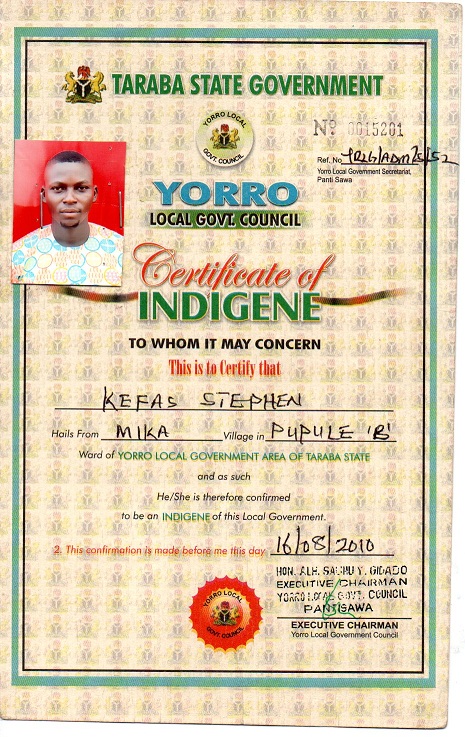 TARABA STATE GOVERNMENT
YORRO LOCAL
GOVT. COUNCIL
Nº 0015201
Ref. No
Yorro Local Government Secretariat,
Panti Sawa
YORRO
LOCAL GOVT. COUNCIL
Certificate of
INDIGENE
TO WHOM IT MAY CONCERN
This is to Certify that
KEFAS STEPHEN
Hails From MIKA Village in PUPULE 'B'
Ward of YORRO LOCAL GOVERNMENT AREA OF TARABA STATE
and as such
He/She is therefore confirmed
to be an INDIGENE of this Local Government.
2. This confirmation is made before me this day 16/08/2010
HON. ALH. SALIHU Y. GIDADO
EXECUTIVE CHAIRMAN
YORRO LOCAL GOVT. COUNCIL
PANTISAWA
EXECUTIVE CHAIRMAN
Yorro Local Government Council
YORRO LOCAL
GOVT. COUNCIL